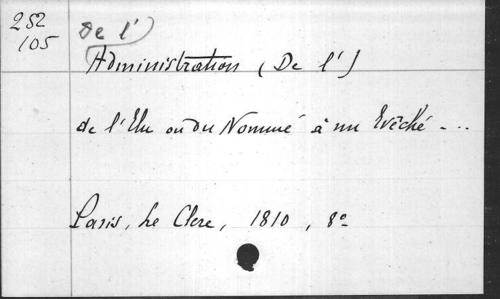 252
105
De l'
Administration (De l')
de l'Elu ou du Nommé à un Evêché - ...
Paris, Le Clere, 1810, 8°